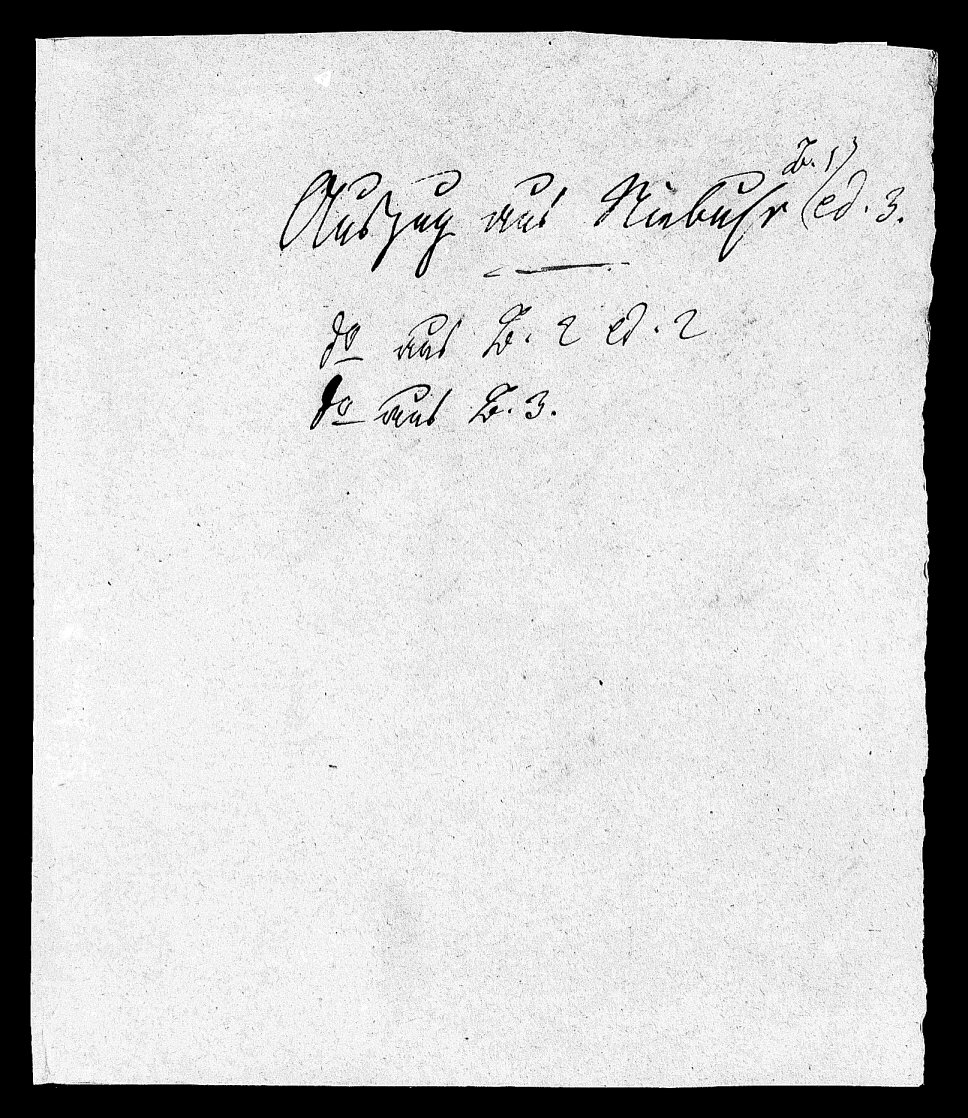 Auszug aus Niebuhr B. 1) (ed. 3.
do aus B. 2 ed. 2
do aus B. 3.